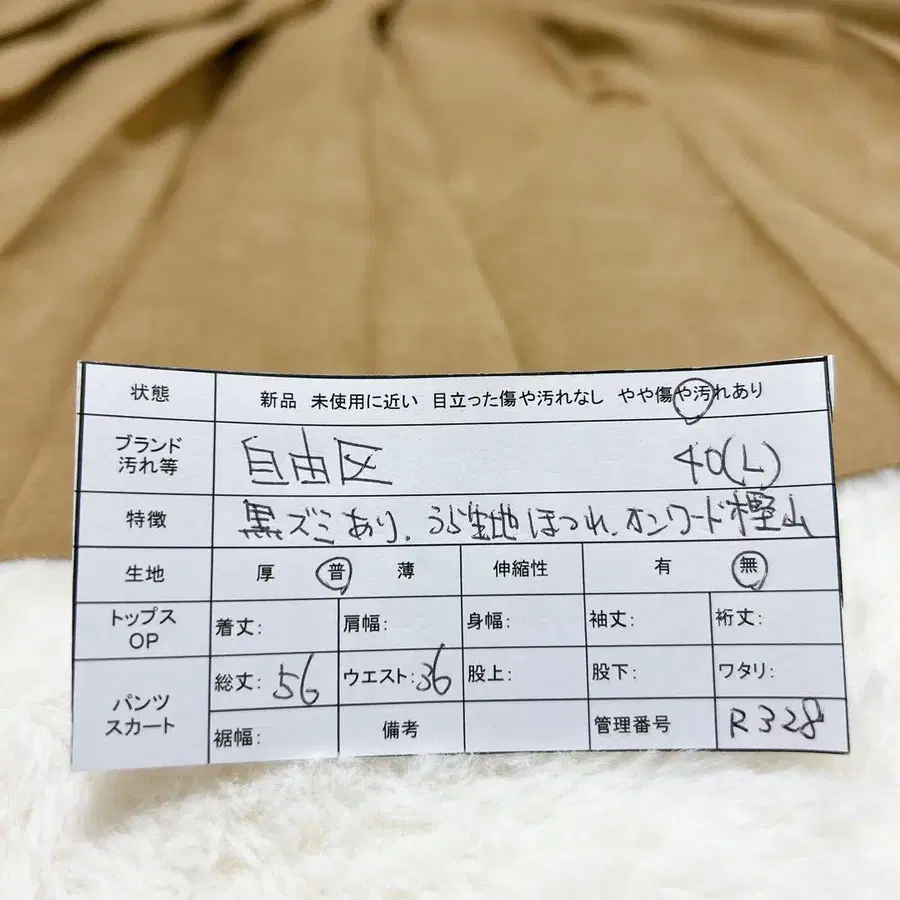 状態 新品 未使用に近い 目立った傷や汚れなし やや傷や汚れあり
ブランド 自由区 40(L)
汚れ等
特徴 黒ズミあり、うら生地ほつれ、オンワード樫山
生地 厚 普 薄 伸縮性 有 無
トップス
OP 着丈: 肩幅: 身幅: 袖丈: 裄丈:
パンツ
スカート 総丈: 56 ウエスト: 36 股上: 股下: ワタリ:
裾幅: 備考 管理番号 R328